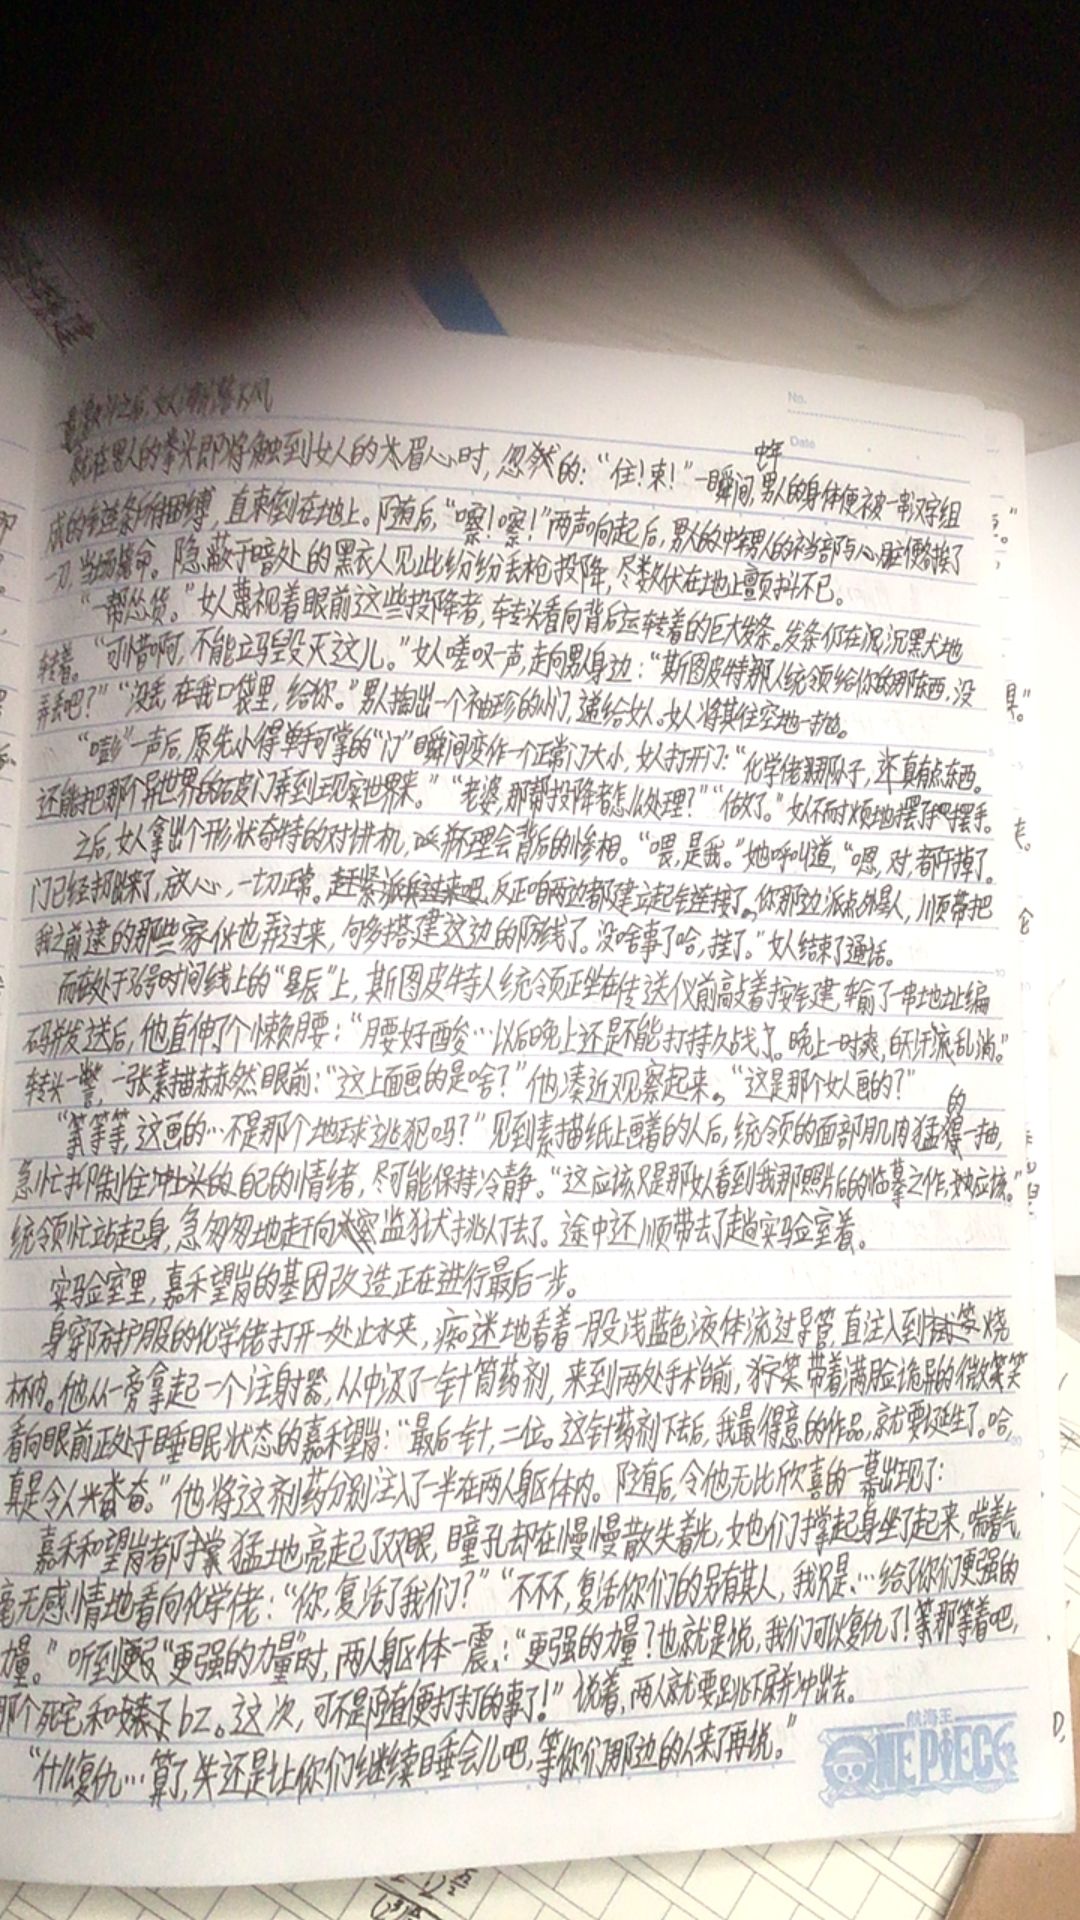 No.
Date
就在男人的拳头即将触到女人的眉心时，忽然的：“住！束！”一瞬间，男人的身体便被一串汉字组
成的链条所捆缚，直束倒在地上。随后，“嚓！嚓！”两声响起后，男人的裆部与心脏便各挨了
一刀，当场毙命。隐蔽于暗处的黑衣人见此纷纷丢枪投降，尽数伏在地上颤抖不已。
“一帮怂货。”女人蔑视着眼前这些投降者，转头看向背后运转着的巨大发条。发条仍在泥沉黑犬地
转着。“可惜啊，不能立马毁灭这儿。”女人嗟叹一声，走向男人身边：“斯图皮特那人统领给你的那东西，没
弄丢吧？”“没丢，在我口袋里，给你。”男人掏出一个袖珍的小门，递给女人。女人将其往空地一抛。
“嘭”一声后，原先小得单手可掌的“门”瞬间变作一个正常门大小，女人打开门：“化学佬那孙子，还真有点东西。
还能把那个异世界的破门弄到现实世界来。”“老婆，那帮投降者怎么处理？”“做了。”女人不耐烦地摆了摆手。
之后，女人拿出个形状奇特的对讲机，理会背后的惨相。“喂，是我。”她呼叫道，“嗯，对，都干掉了。
门已经扔出来了，放心，一切正常。赶紧派兵过来吧，反正咱两边都建立起链接了。你那边派点外星人，顺带把
我之前逮的那些家伙也弄过来，够多搭建这边的防线了。没啥事了哈，挂了。”女人结束了通话。
而在处于36号时间线上的“星辰”上，斯图皮特人统领正坐在传送仪前敲着按键，输了一串地址编
码并发送后，他直伸了个懒腰：“腰好酸…以后晚上还是不能打持久战了。晚上一时爽，白天汗流乱淌。”
转头一瞥，一张素描赫然眼前：“这上面画的是啥？”他凑近观察起来。“这是那个女人画的？”
“等等等，这画的…不是那个地球逃犯吗？”见到素描纸上画着的人后，统领的面部肌肉猛的一抽，
急忙抑制住冲上头的自己的情绪，尽可能保持冷静。“这应该只是那女人看到我那照片后的临摹之作，应该。”
统领忙站起身，急匆匆地赶向监狱挑人去了。途中还顺带去了趟实验室看。
实验室里，嘉禾望岗的基因改造正在进行最后一步。
身穿防护服的化学佬打开一处止水夹，痴迷地看着一股浅蓝色液体流过导管，直注入到烧
杯内。他从一旁拿起一个注射器，从中汲了一针筒药剂，来到两处手术台前，带着满脸诡异的微笑
看向眼前正处于睡眠状态的嘉禾望岗：“最后一针，二位。这针药剂下去后，我最得意的作品，就要诞生了。哈，
真是令人兴奋。”他将这剂药分别注入了一半在两人躯体内。随后，令他无比欣喜的一幕出现了：
嘉禾和望岗都猛地亮起了双眼，瞳孔却在慢慢散失着光，她们手撑起身坐了起来，喘着气，
毫无感情地看向化学佬：“你，复活了我们？”“不不不，复活你们的另有某人，我只是…给了你们更强的
力量。”听到“更强的力量”时，两人躯体一震：“更强的力量？也就是说，我们可以复仇了！等那等着吧，
那个死宅和婊子bz。这次，可不是随便打打的事了！”说着，两人就要跳下床并冲出去。
“什么复仇…算了，先还是让你们继续睡会儿吧，等你们那边的人来了再说。”
航海王
ONE PIECE